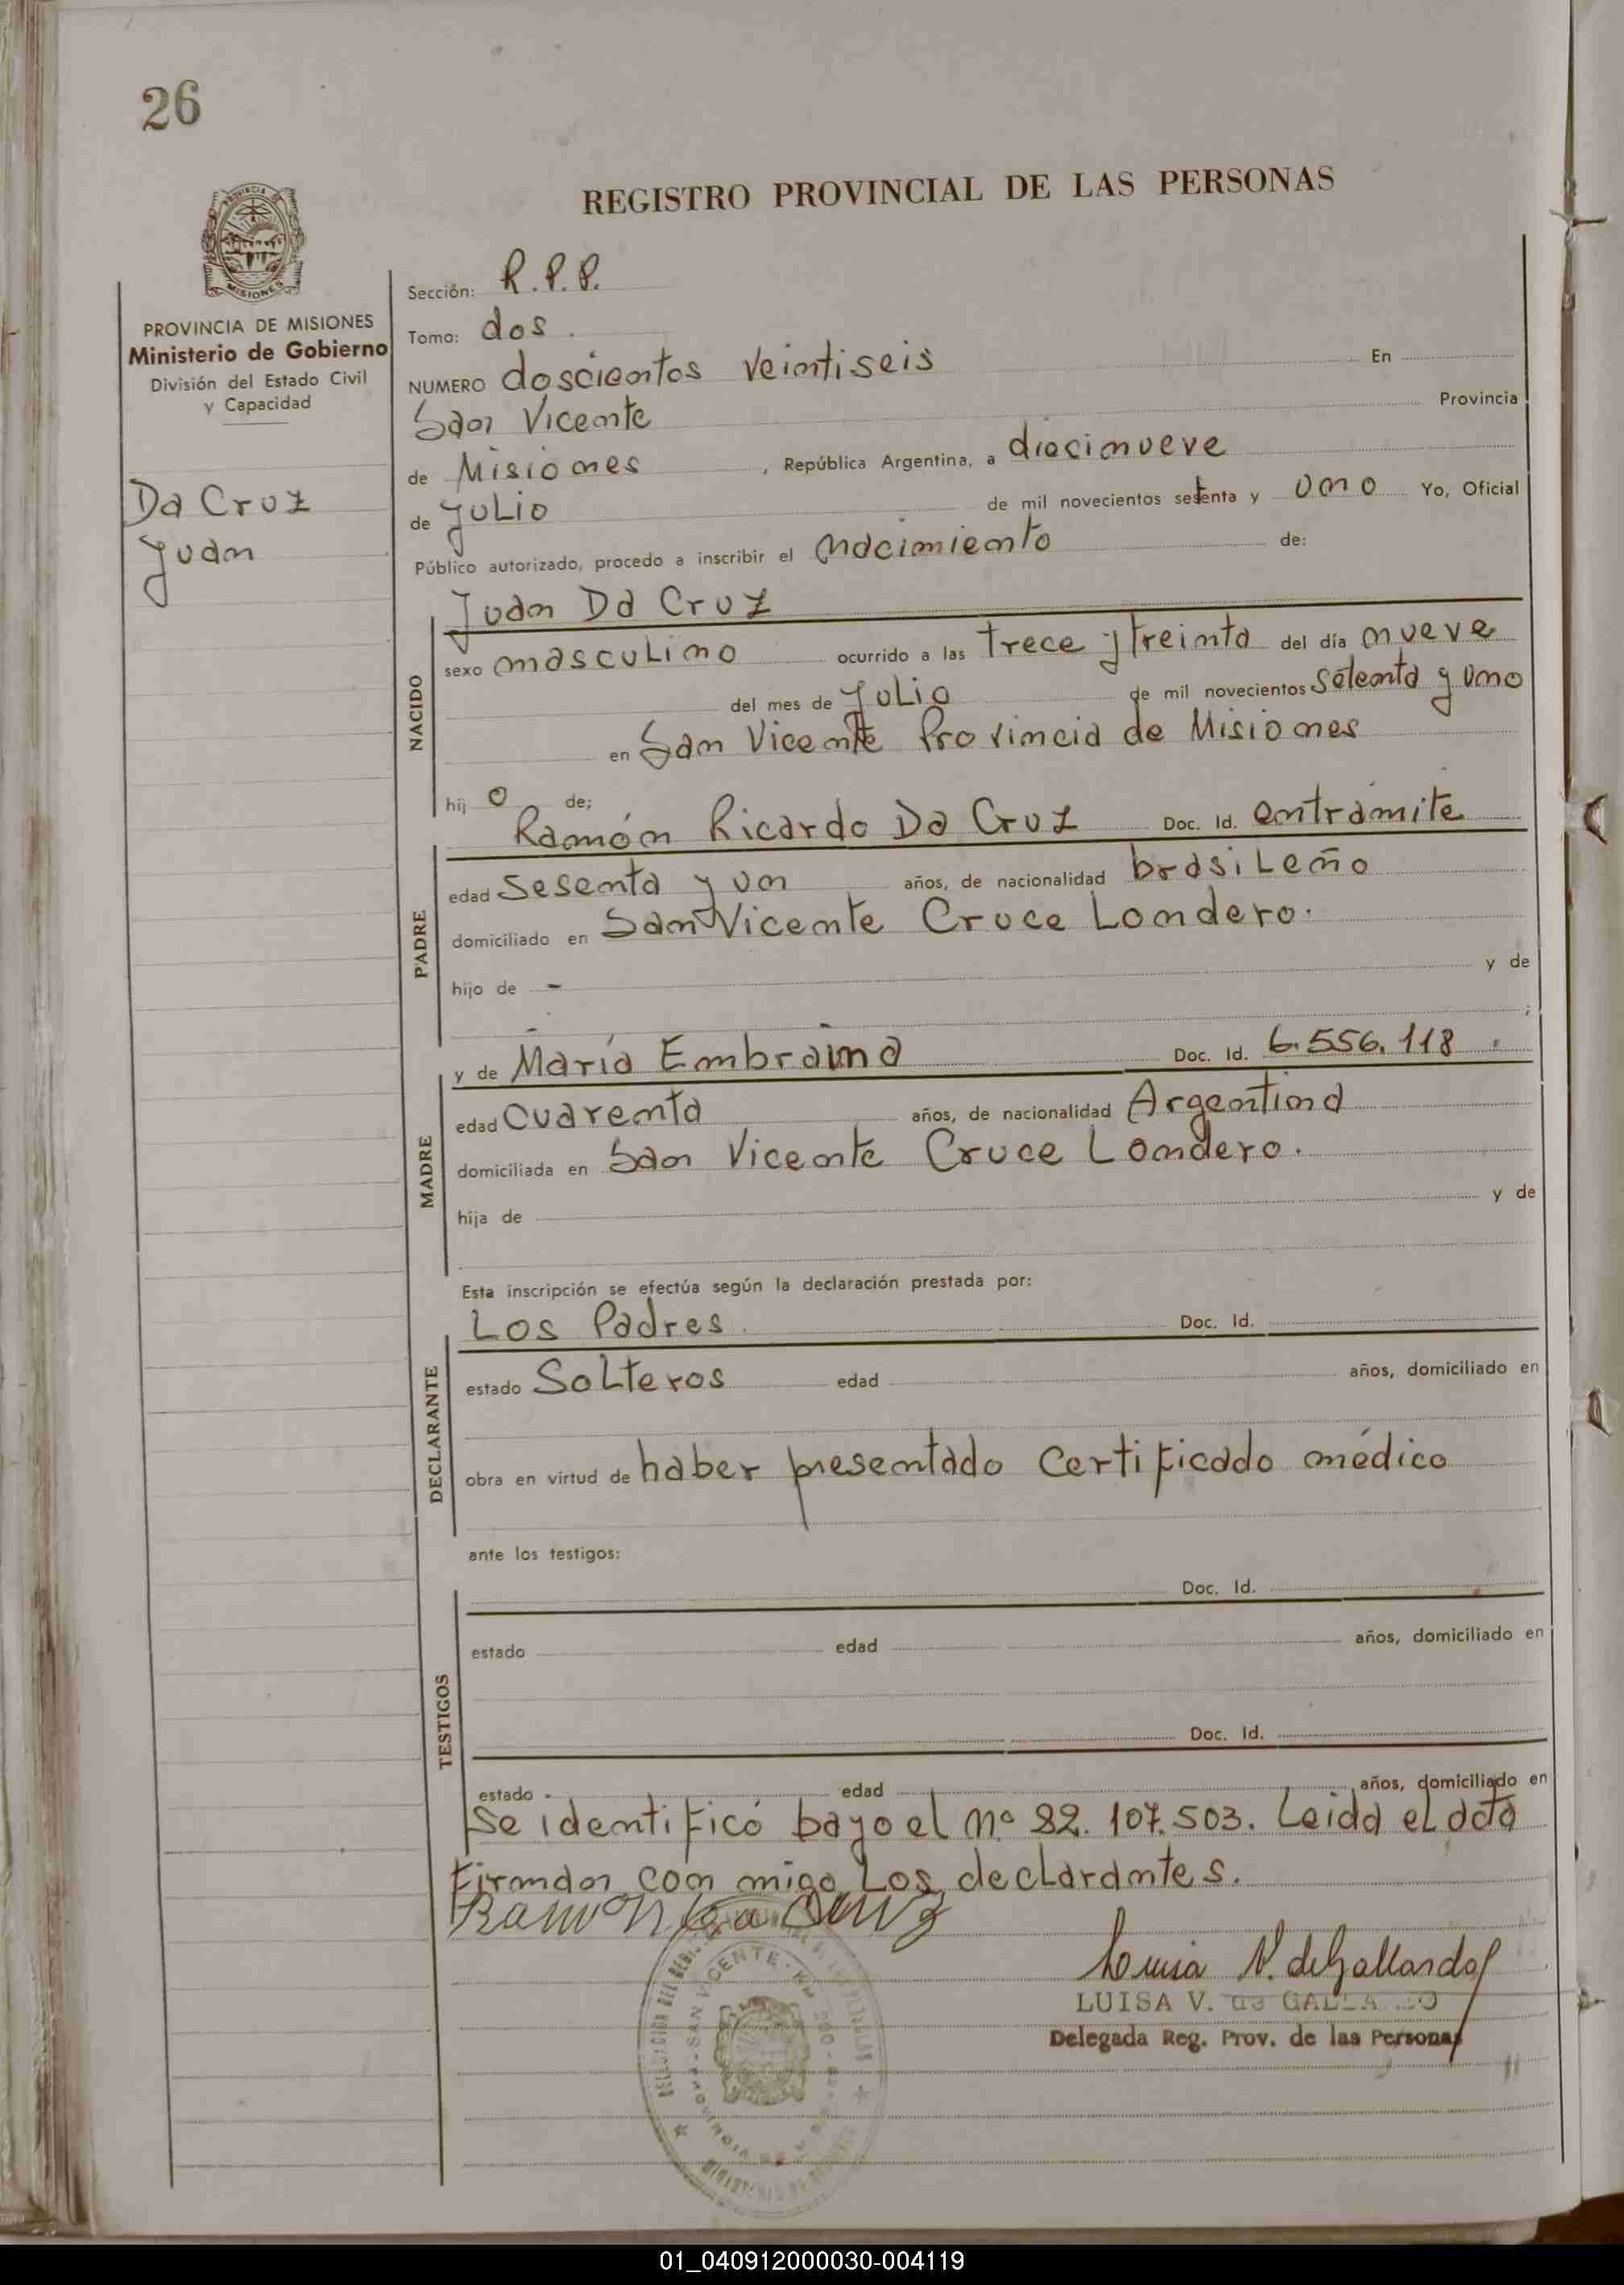 26
REGISTRO PROVINCIAL DE LAS PERSONAS
MISIONES
PROVINCIA DE MISIONES
Ministerio de Gobierno
División del Estado Civil
y Capacidad
Da Cruz
Juan
Sección: R.P.P.
Tomo: dos.
NUMERO doscientos veintiseis En
San Vicente Provincia
de Misiones, República Argentina, a diecinueve
de Julio de mil novecientos setenta y uno Yo, Oficial
Público autorizado, procedo a inscribir el nacimiento de:
NACIDO
Juan Da Cruz
sexo masculino ocurrido a las trece y treinta del día nueve
del mes de Julio de mil novecientos setenta y uno
en San Vicente Provincia de Misiones
hij o de;
PADRE
Ramón Ricardo Da Cruz Doc. Id. entramite
edad Sesenta y un años, de nacionalidad brasileño
domiciliado en San Vicente Cruce Londero.
hijo de - y de
;
MADRE
y de María Embraina Doc. Id. 6.556.118
edad Cuarenta años, de nacionalidad Argentina
domiciliada en San Vicente Cruce Londero.
hija de y de
Esta inscripción se efectúa según la declaración prestada por:
DECLARANTE
Los Padres Doc. Id.
estado Solteros edad años, domiciliado en
obra en virtud de haber presentado Certificado médico
ante los testigos:
TESTIGOS
Doc. Id.
estado edad años, domiciliado en
Doc. Id.
estado edad años, domiciliado en
Se identificó bajo el nº 82.107.503. Leida el acta
firman con migo Los declarantes.
Ramon Da Cruz
SAN VICENTE
Luisa V. de Gallardo
LUISA V. de GALLARDO
Delegada Reg. Prov. de las Personas
01_040912000030-004119